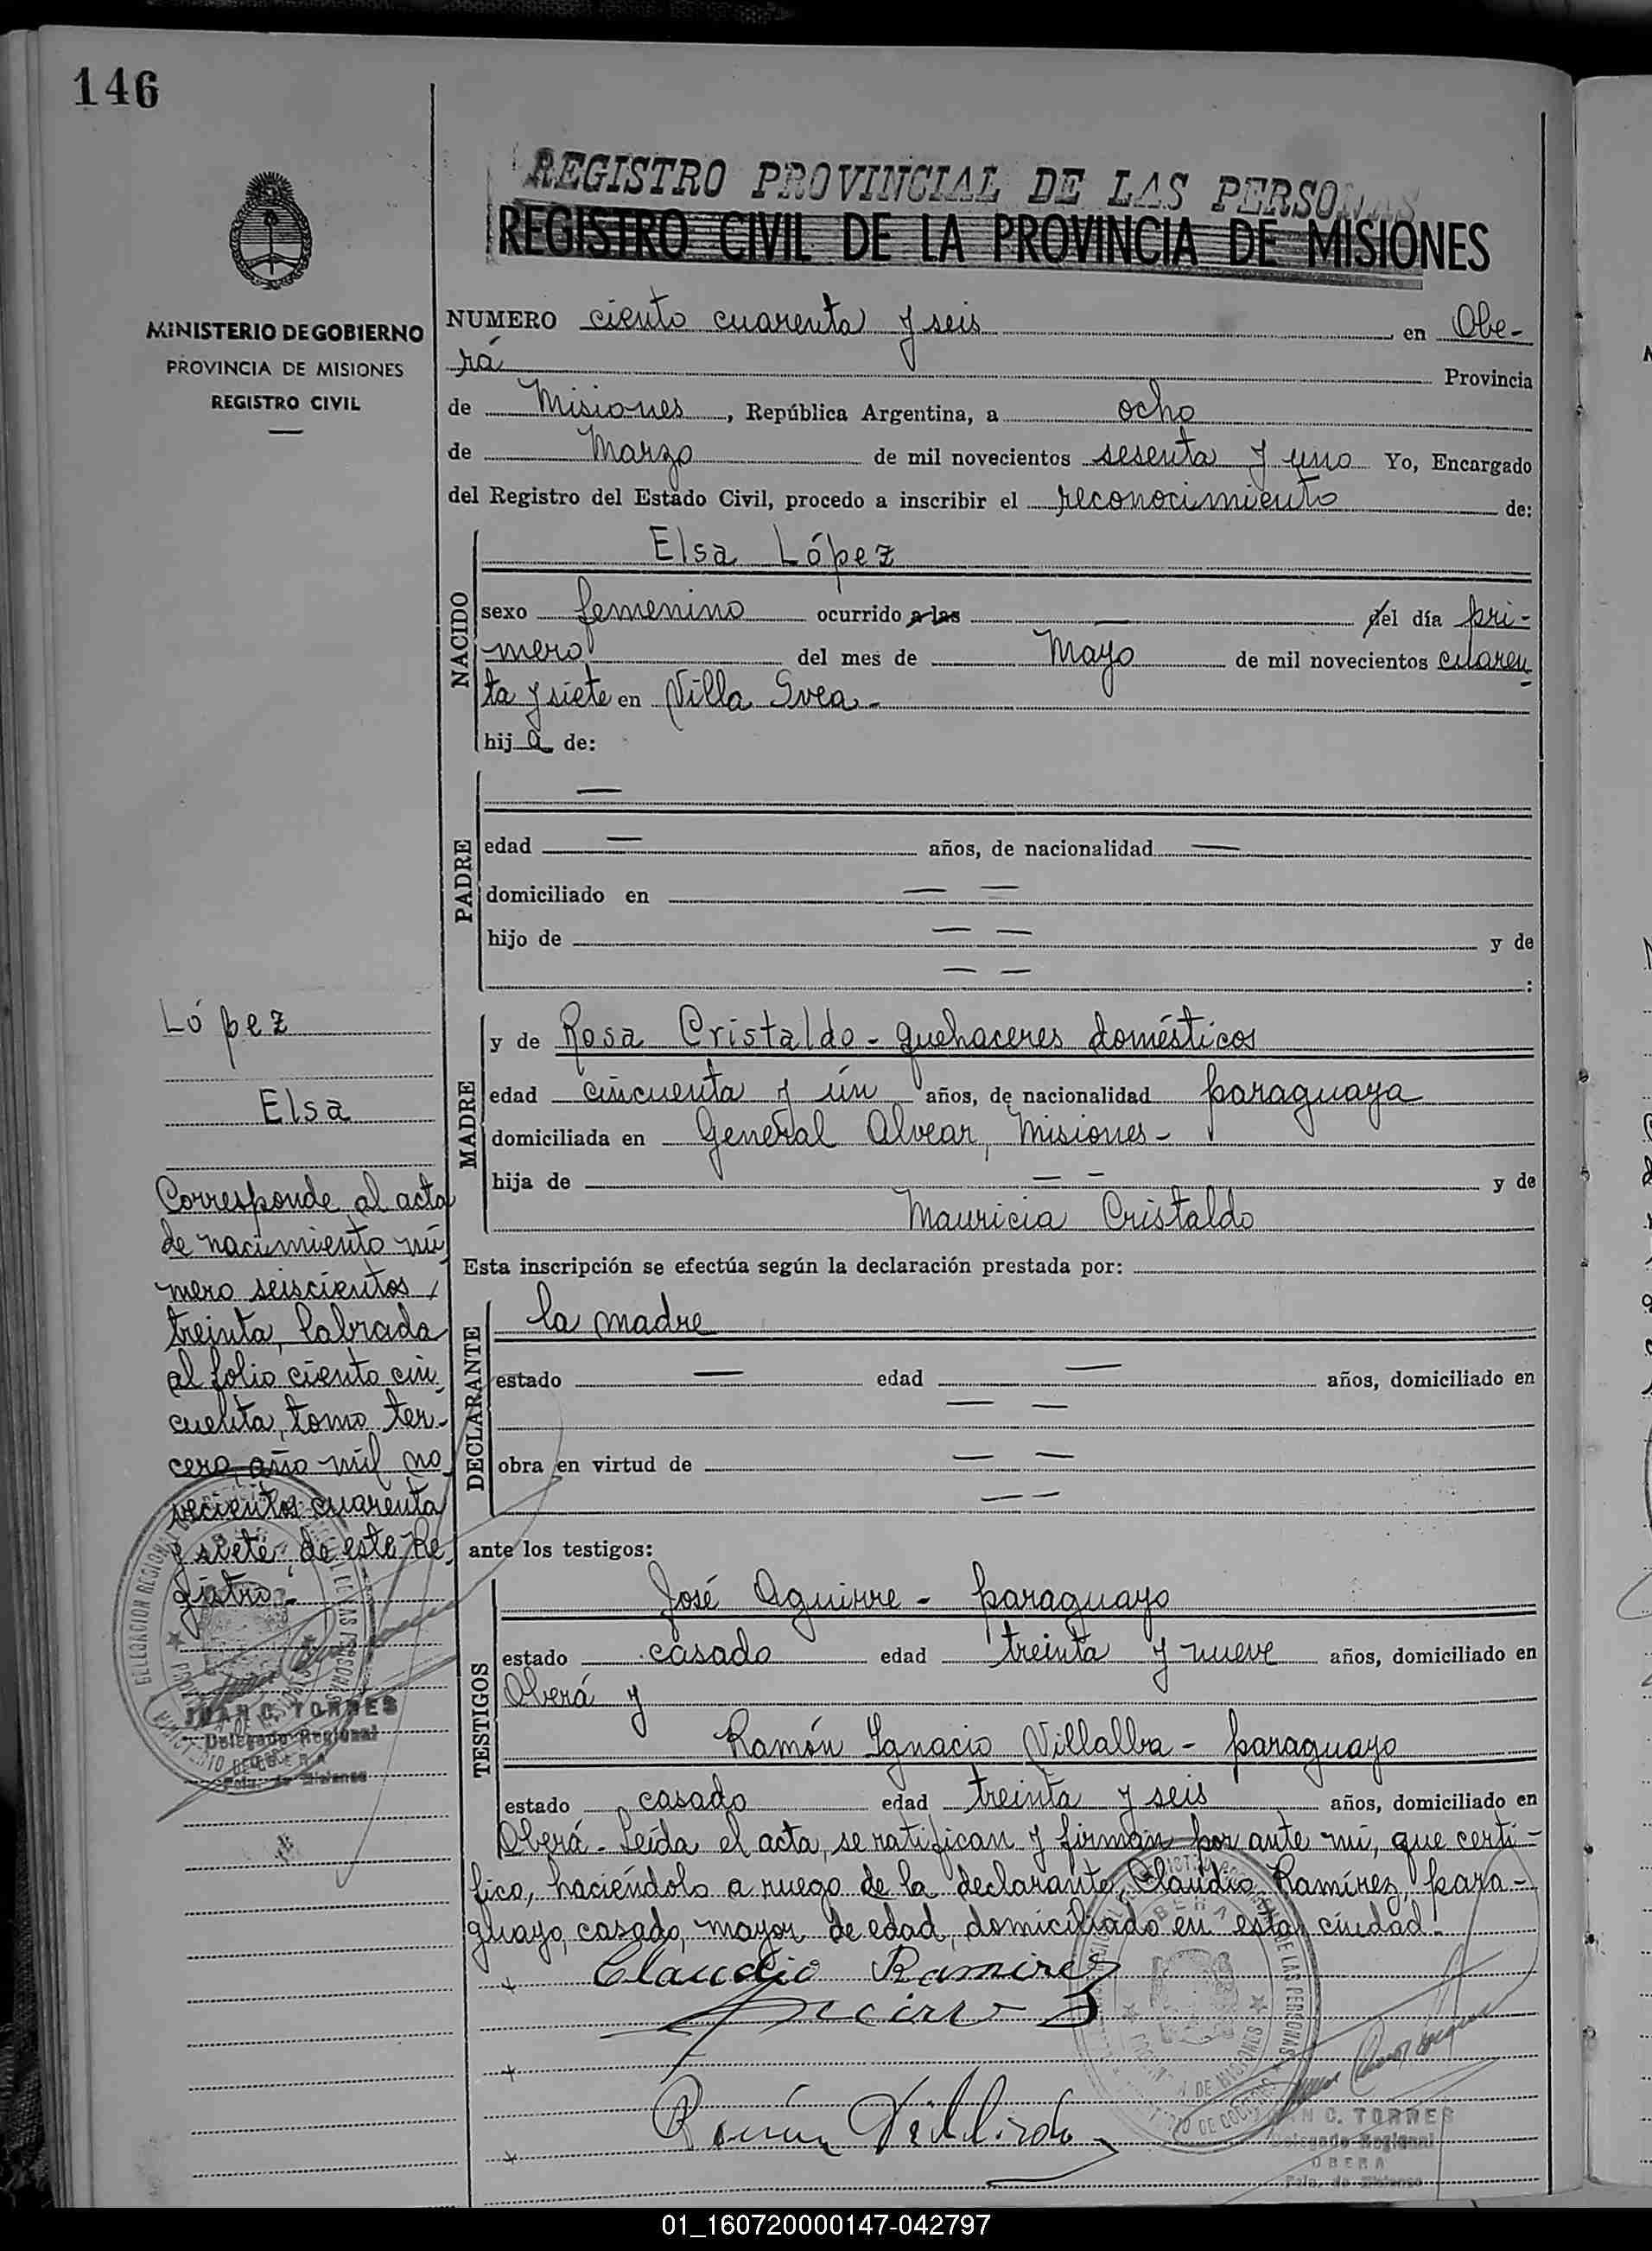 146
REGISTRO PROVINCIAL DE LAS PERSONAS
REGISTRO CIVIL DE LA PROVINCIA DE MISIONES
MINISTERIO DE GOBIERNO
PROVINCIA DE MISIONES
REGISTRO CIVIL
NUMERO ciento cuarenta y seis en Obe-
rá Provincia
de Misiones, República Argentina, a ocho
de Marzo de mil novecientos sesenta y uno Yo, Encargado
del Registro del Estado Civil, procedo a inscribir el reconocimiento de:
NACIDO
Elsa López
sexo femenino ocurrido a las — del día pri-
mero del mes de Mayo de mil novecientos cuaren
ta y siete en Villa Svea-
hija de:
PADRE
—
edad — años, de nacionalidad —
domiciliado en — —
hijo de — — y de
— — :
López
Elsa
MADRE
y de Rosa Cristaldo - quehaceres domésticos
edad cincuenta y ún años, de nacionalidad paraguaya
domiciliada en General Alvear, Misiones-
hija de — — y de
Mauricia Cristaldo
Esta inscripción se efectúa según la declaración prestada por:
DECLARANTE
la madre
estado — edad — años, domiciliado en
— —
obra en virtud de — —
— —
Corresponde al acta
de nacimiento nú
mero seiscientos
treinta, labrada
al folio ciento cin
cuenta, tomo ter-
cero, año mil no
vecientos cuarenta
y siete, de este Re
gistro.-
JUAN C. TORRES
Delegado Regional
OBERA
Pcia. de Misiones
ante los testigos:
TESTIGOS
José Aguirre - paraguayo
estado casado edad treinta y nueve años, domiciliado en
Oberá y
Ramón Ignacio Villalba - paraguayo
estado casado edad treinta y seis años, domiciliado en
Oberá - Leída el acta, se ratifican y firman por ante mí, que certi-
fico, haciéndolo a ruego de la declarante, Claudio Ramírez, para-
guayo, casado, mayor de edad, domiciliado en esta ciudad.-
Claudio Ramirez
JUAN C. TORRES
Delegado Regional
OBERA
Pcia. de Misiones
01_160720000147-042797